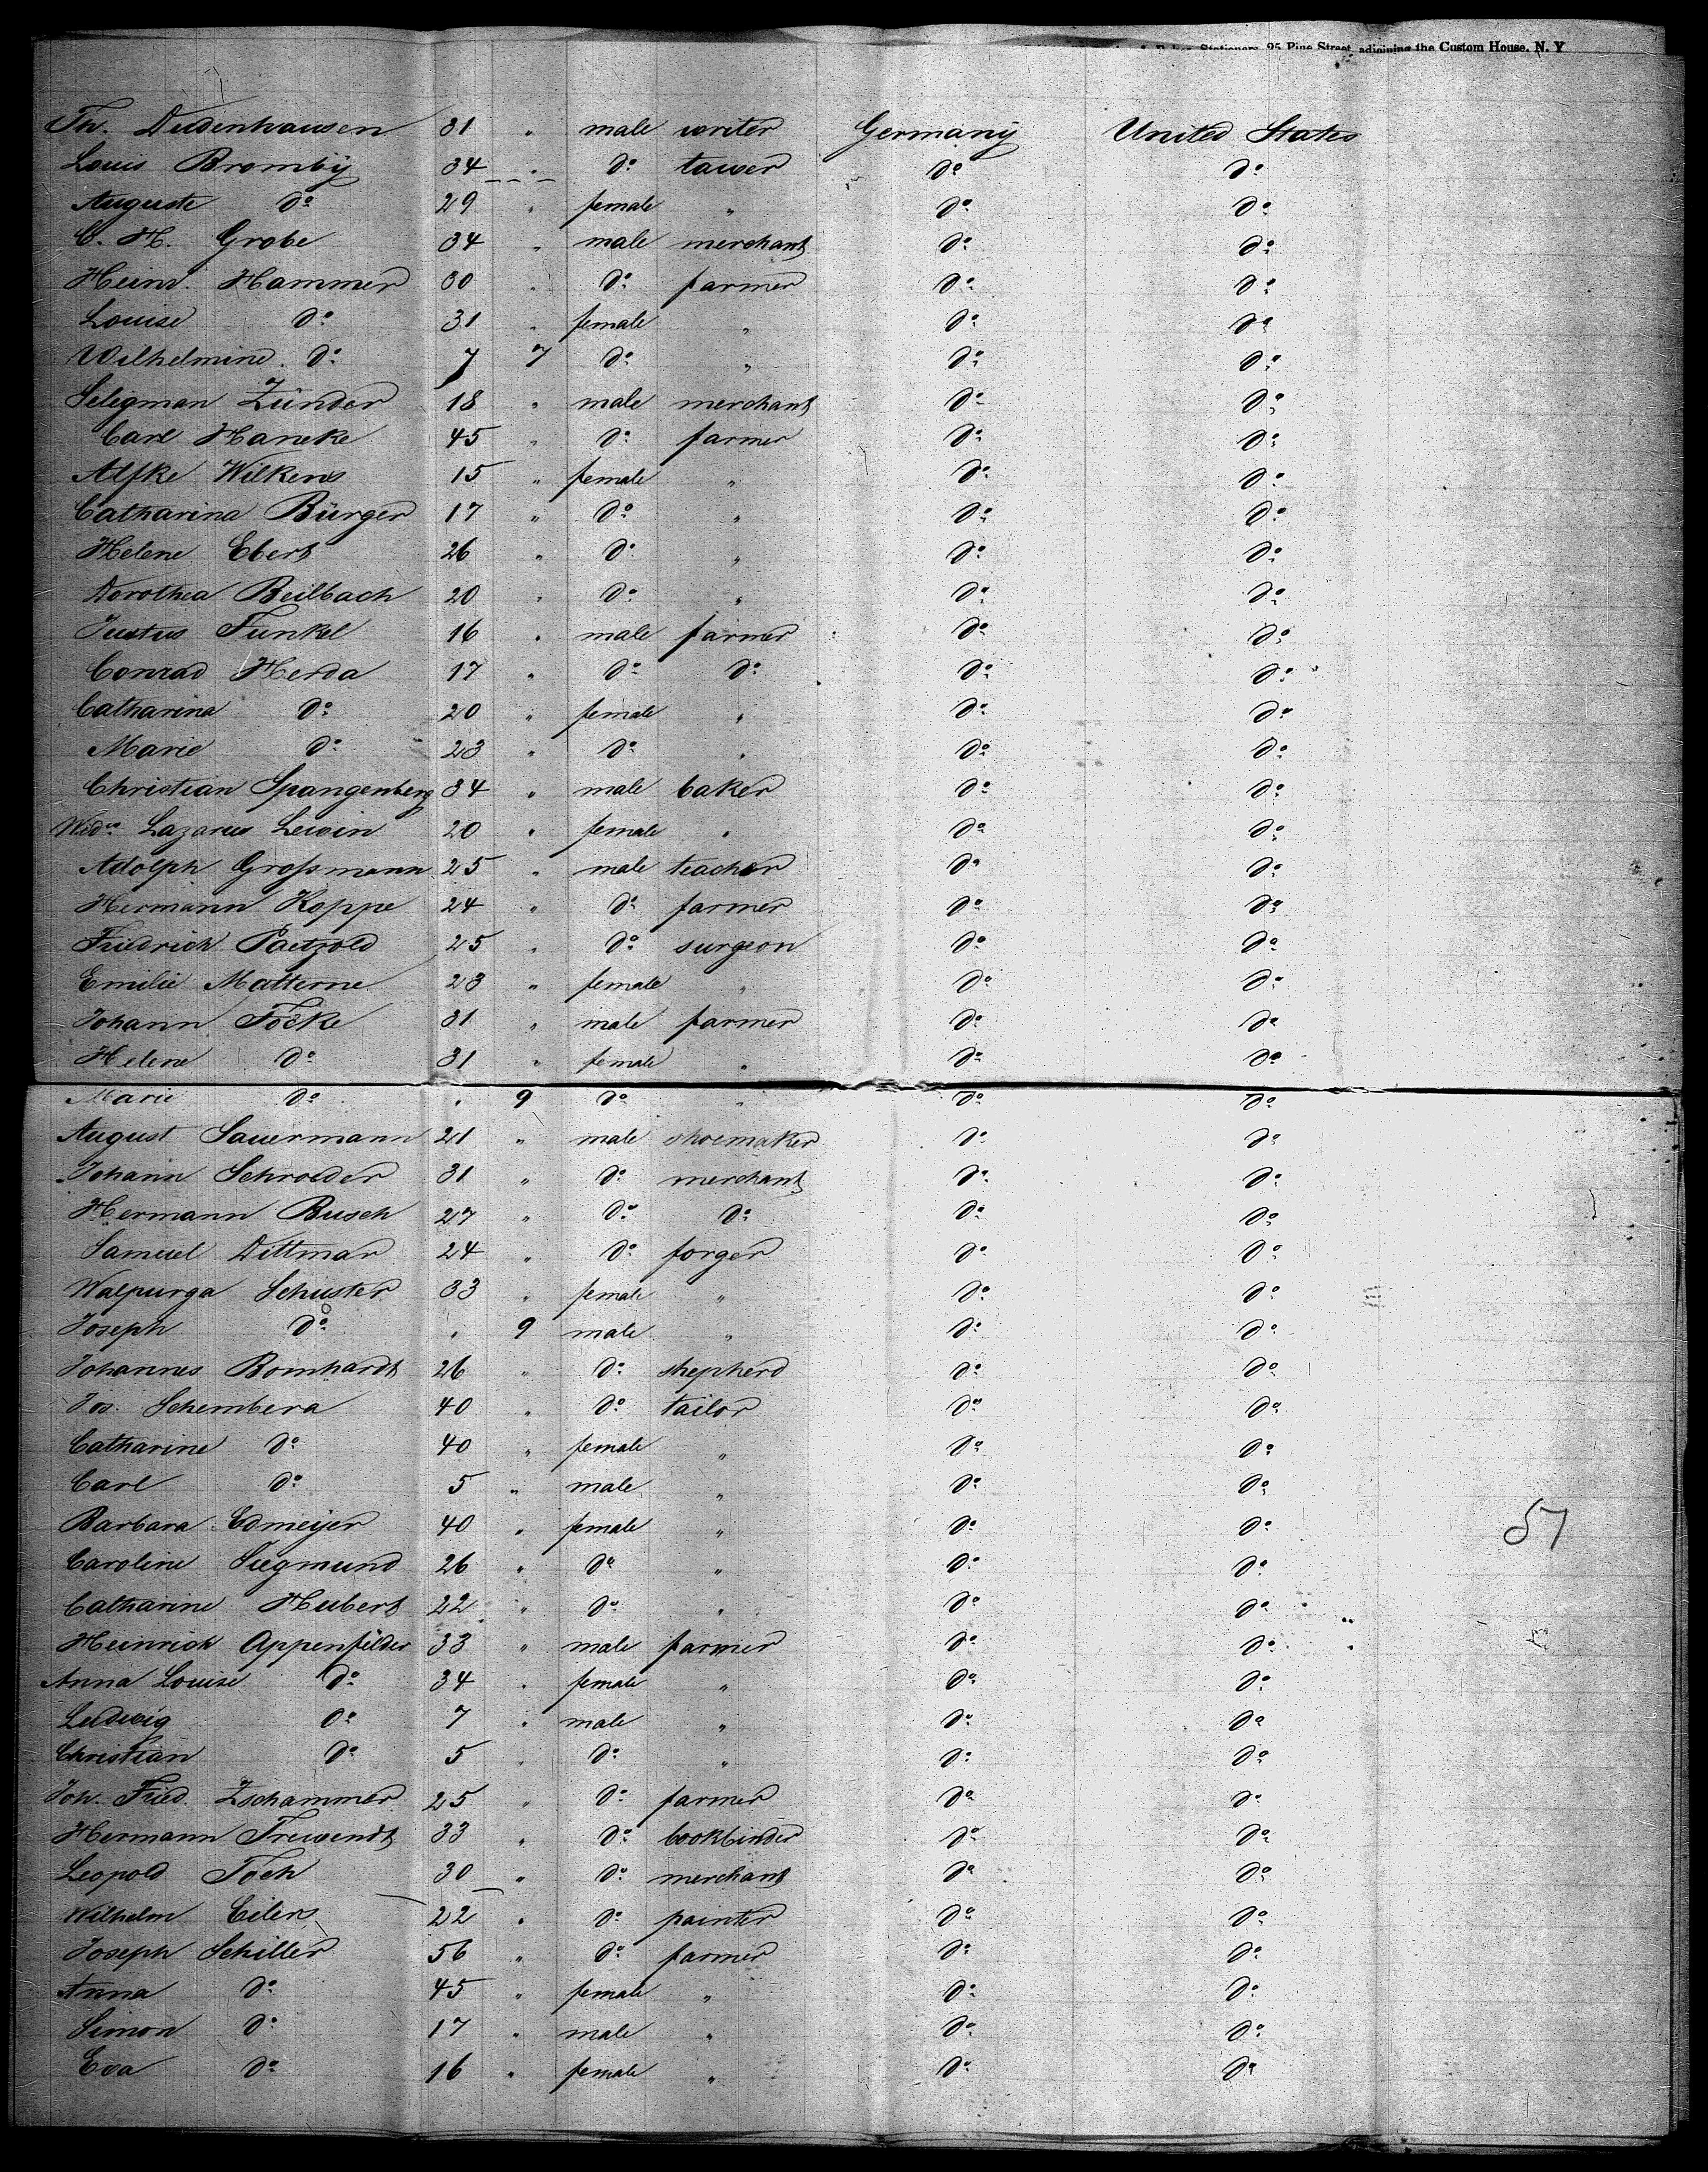 Stationers, 95 Pine Street, adjoining the Custom House, N. Y
Th. Dudenhausen 31 " male writer Germany United States
Louis Bromby 34 " do tawer do do
Auguste do 29 " female " do do
C. H. Grobe 34 " male merchant do do
Heinr. Hammer 30 " do farmer do do
Louise do 31 " female " do do
Wilhelmine do 7 7 do " do do
Seligman Zünder 18 " male merchant do do
Carl Haneke 45 " do farmer do do
Alfke Wilkens 15 " female " do do
Catharina Bürger 17 " do " do do
Helene Ebert 26 " do " do do
Dorothea Beilbach 20 " do " do do
Justus Funkel 16 " male farmer do do
Conrad Herda 17 " do do do do
Catharina do 20 " female " do do
Marie do 23 " do " do do
Christian Spangenberg 34 " male baker do do
Wid. Lazarus Lewin 20 " female " do do
Adolph Großmann 25 " male teacher do do
Hermann Koppe 24 " do farmer do do
Friedrich Paetzold 25 " do surgeon do do
Emilie Matterne 23 " female " do do
Johann Focke 31 " male farmer do do
Helene do 31 " female " do do
Marie do " 9 do " do do
August Sauermann 21 " male shoemaker do do
Johann Schroeder 31 " do merchant do do
Hermann Busch 27 " do do do do
Samuel Dittmar 24 " do forger do do
Walpurga Schuster 33 " female " do do
Joseph do " 9 male " do do
Johannes Bomhardt 26 " do shepherd do do
Jos. Schembera 40 " do tailor do do
Catharine do 40 " female " do do
Carl do 5 " male " do do
Barbara Edmeijer 40 " female " do do
57
Caroline Siegmund 26 " do " do do
Catharine Hubert 22 " do " do do
Heinrich Appenfelder 33 " male farmer do do
Anna Louise do 34 " female " do do
Ludwig do 7 " male " do do
Christian do 5 " do " do do
Joh. Fried. Zschammer 25 " do farmer do do
Hermann Trewendt 33 " do bookbinder do do
Leopold Toch 30 " do merchant do do
Wilhelm Eilers 22 " do painter do do
Joseph Schiller 56 " do farmer do do
Anna do 45 " female " do do
Simon do 17 " male " do do
Eva do 16 " female " do do